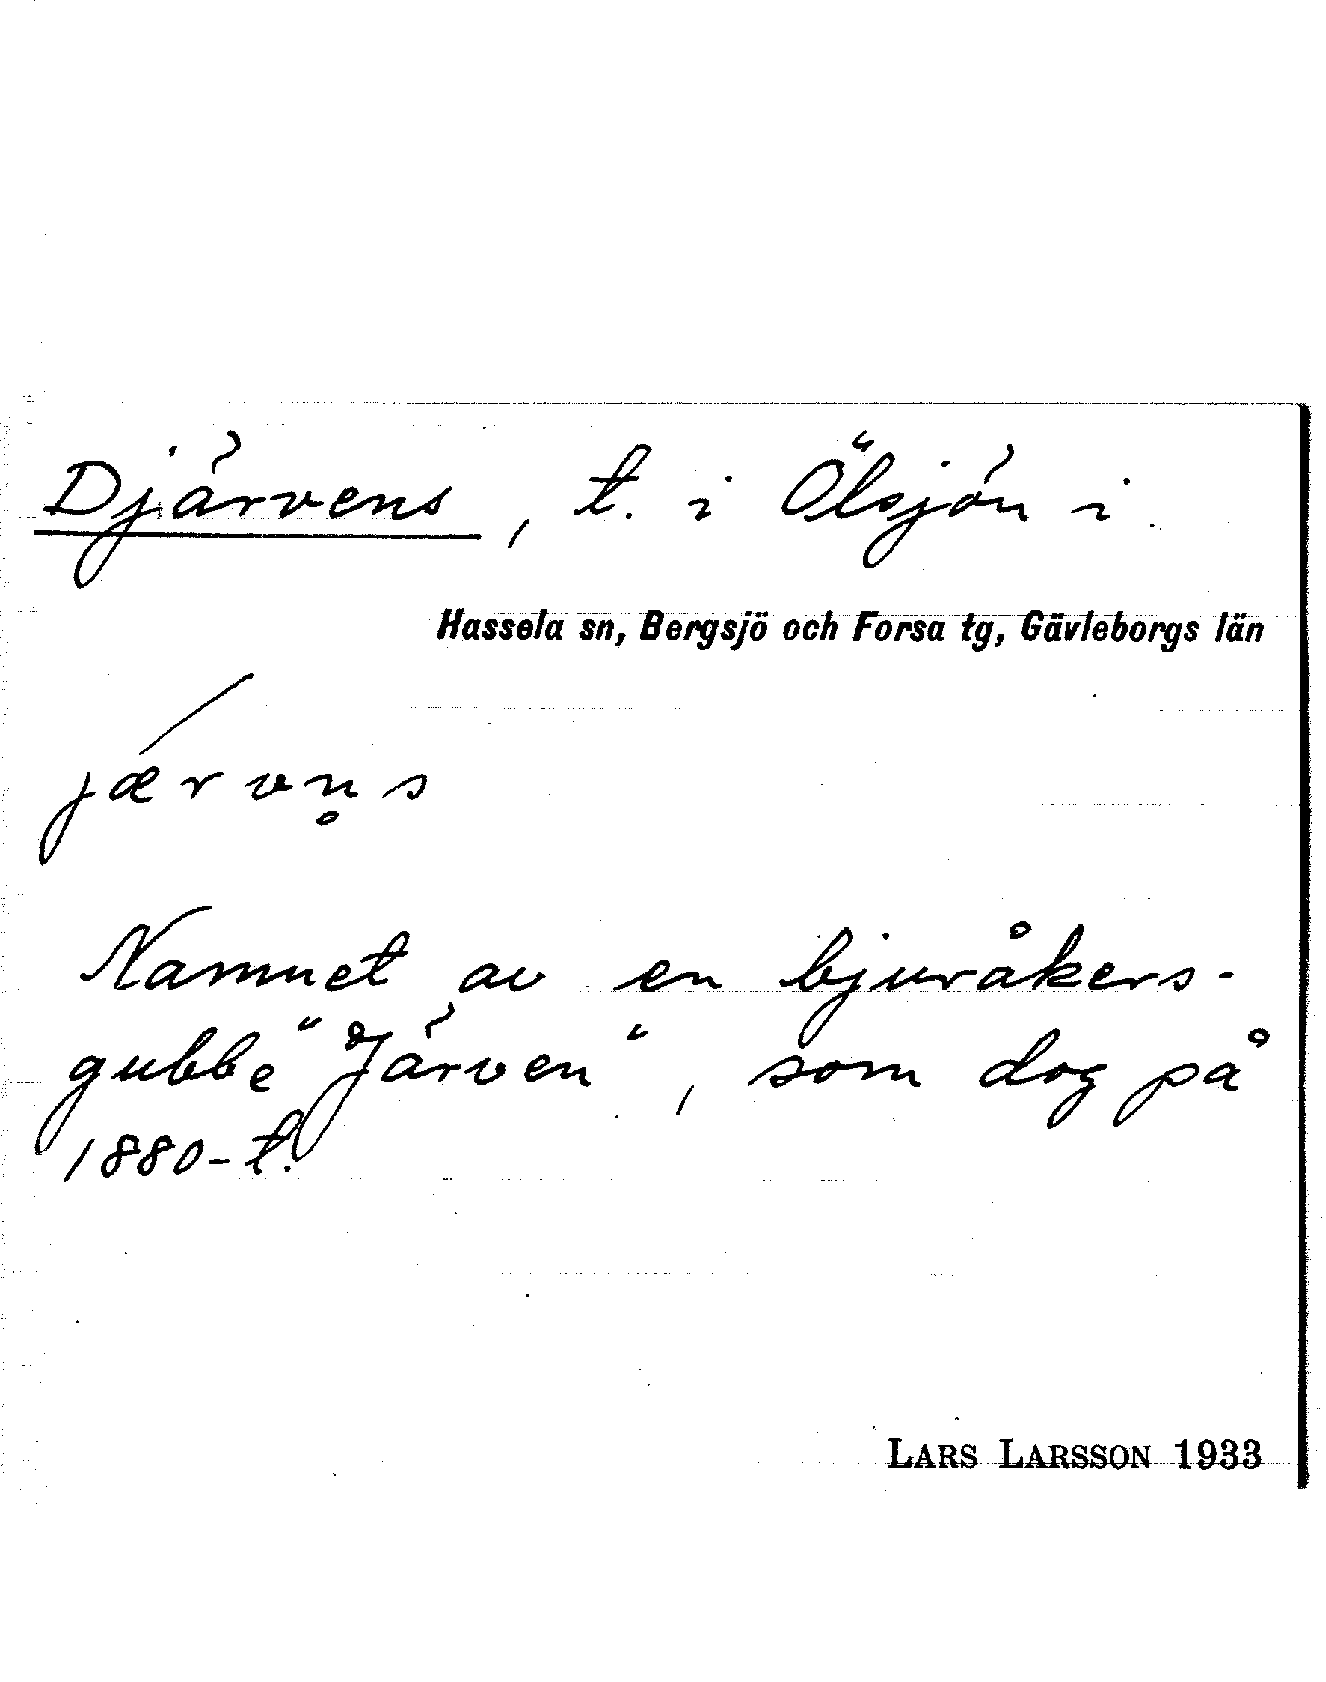 Djärvens, t. i Ölsjön i
Hassela sn, Bergsjö och Forsa tg, Gävleborgs län
jærvn̥s
Namnet av en bjuråkers-
gubbe "Järven", som dog på
1880-t.
LARS LARSSON 1933